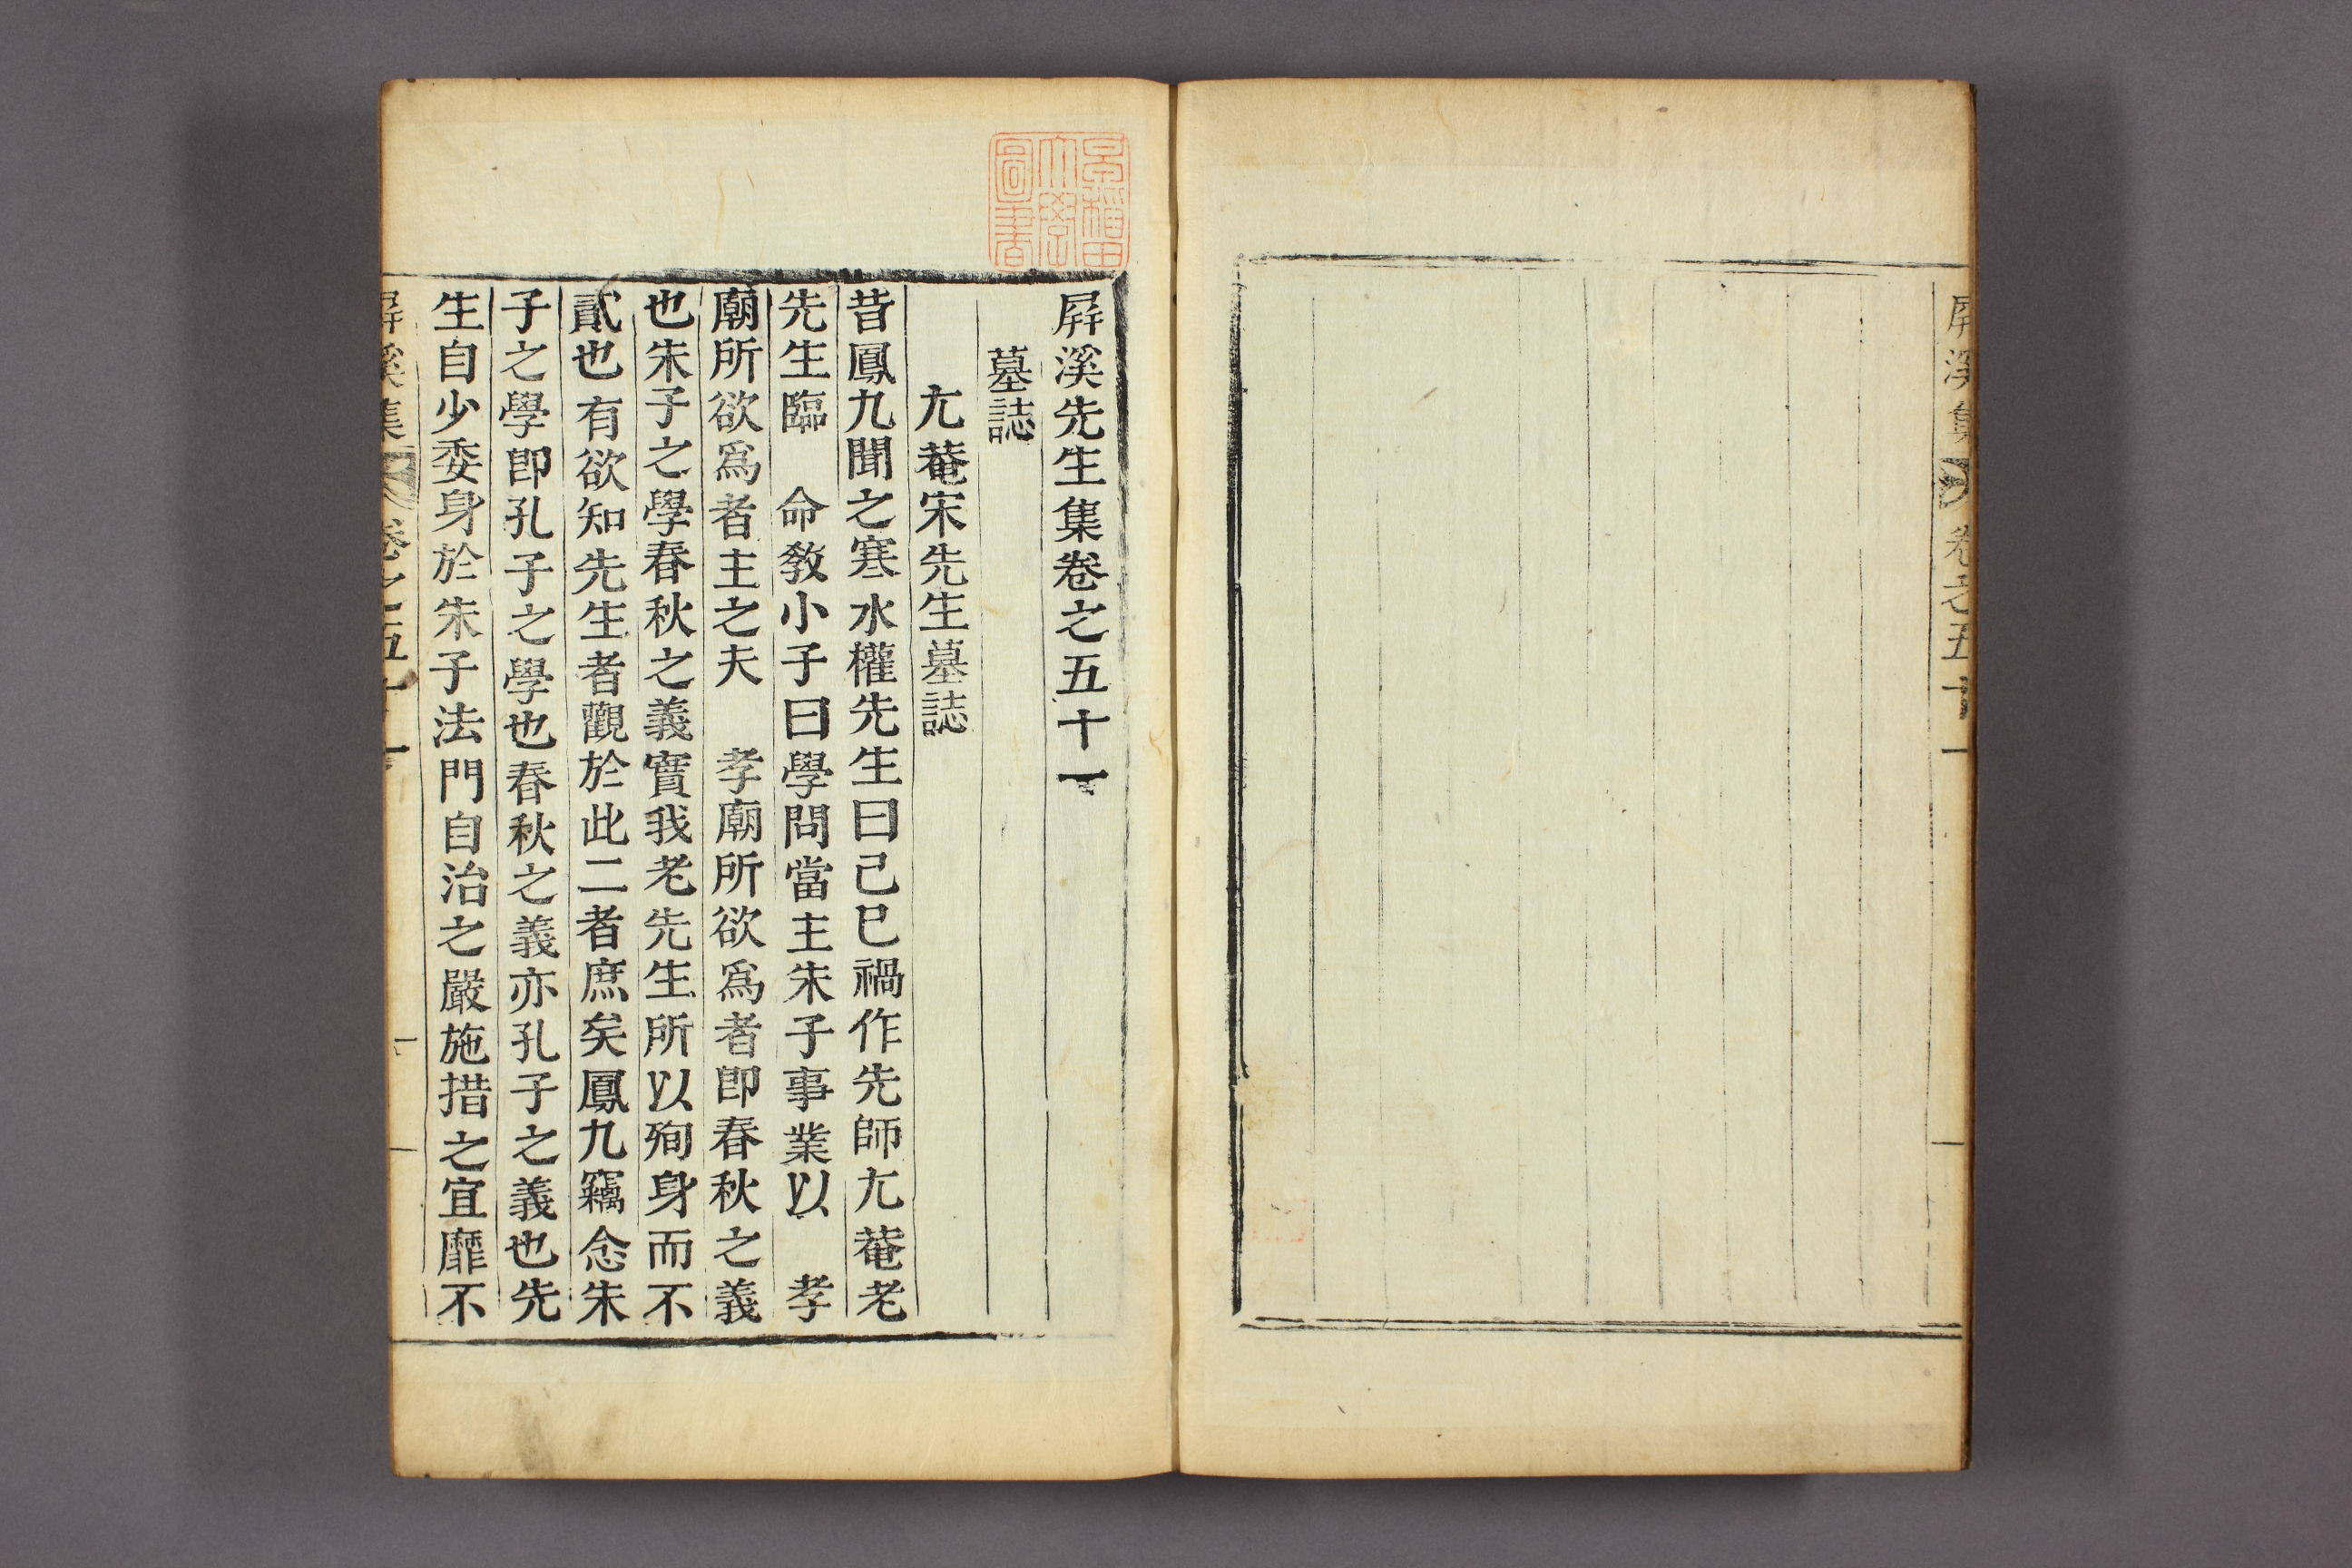 屛溪集
卷之五十一
早稻田
大學
圖書
屛溪先生集卷之五十一
墓誌
尤菴宋先生墓誌
昔鳳九聞之寒水權先生曰己巳禍作先師尤菴老
先生臨　命敎小子曰學問當主朱子事業以　孝
廟所欲爲者主之夫　孝廟所欲爲者卽春秋之義
也朱子之學春秋之義實我老先生所以殉身而不
貳也有欲知先生者觀於此二者庶矣鳳九竊念朱
子之學卽孔子之學也春秋之義亦孔子之義也先
生自少委身於朱子法門自治之嚴施措之宜靡不
屛溪集
卷之五十一
一